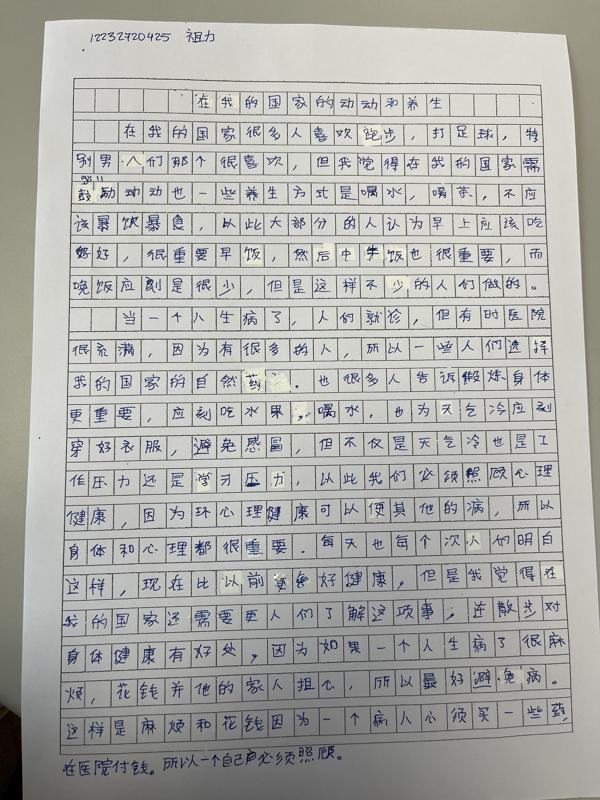 12232720425 祖力
在我的国家的动动和养生
在我的国家很多人喜欢跑步，打足球，特
别男人们那个很喜欢，但我觉得在我的国家需
鼓励动动也一些养生方式是喝水，喝茶，不应
该暴饮暴食，以此大部分的人认为早上应该吃
好好，很重要早饭，然后中午饭也很重要，而
晚饭应刻是很少，但是这样不少的人们做的。
当一个人生病了，人们就诊，但有时医院
很充满，因为有很多的人，所以一些人们选择
我的国家的自然药。也很多人告诉锻炼身体
更重要，应刻吃水果，喝水，也为天气冷应刻
穿好衣服，避免感冒，但不仅是天气冷也是工
作压力还是学习压力，以此我们必须照顾心理
健康，因为坏心理健康可以使其他的病，所以
身体和心理都很重要．每天也每个次人们明白
这样，现在比以前更多好健康，但是我觉得在
我的国家还需要更人们了解这项事，连散步对
身体健康有好处，因为如果一个人生病了很麻
烦，花钱并他的家人担心，所以最好避免病。
这样是麻烦和花钱因为一个病人必须买一些药，
在医院付钱。所以一个自己必须照顾。